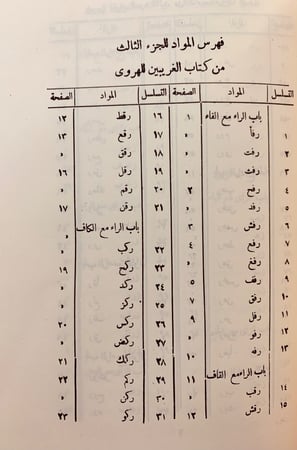 فهرس المواد للجزء الثالث
من كتاب الغريبين للهروى
التسلسل المواد الصفحة
باب الراء مع الفاء ١
١ رفأ »
٢ رفت »
٣ رفث »
٤ رفح ٢
٥ رفد »
٦ رفش ٣
٧ رفع ٤
٨ رفغ »
٩ رفف ٥
١٠ رفق ٧
١١ رفل ٩
١٢ رفو »
١٣ رفه ١٠
باب الراء مع القاف
١٤ رقب ١١
١٥ رقش ١٢
التسلسل المواد الصفحة
١٦ رقط ١٢
١٧ رقع ١٣
١٨ رقق »
١٩ رقل ١٦
٢٠ رقم »
٢١ رقن ١٧
باب الراء مع الكاف
٢٢ ركب »
٢٣ ركح ١٩
٢٤ ركد »
٢٥ ركز »
٢٦ ركس ٢٠
٢٧ ركض »
٢٨ ركك ٢١
٢٩ ركم ٢٢
٣٠ ركن »
٣١ ركو ٢٣